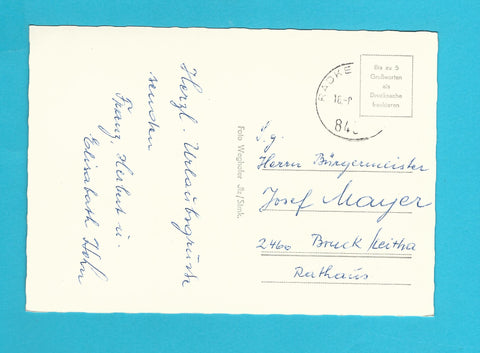 Herzl. Urlaubsgrüsse
senden
Franz, Herbert u.
Elisabeth
Foto Weghofer Jlz/Stmk.
Bis zu 5
Grußworten
als
Drucksache
frankieren
18.-8
S. g.
Herrn Bürgermeister
Josef Mayer
2460 Bruck/Leitha
Rathaus